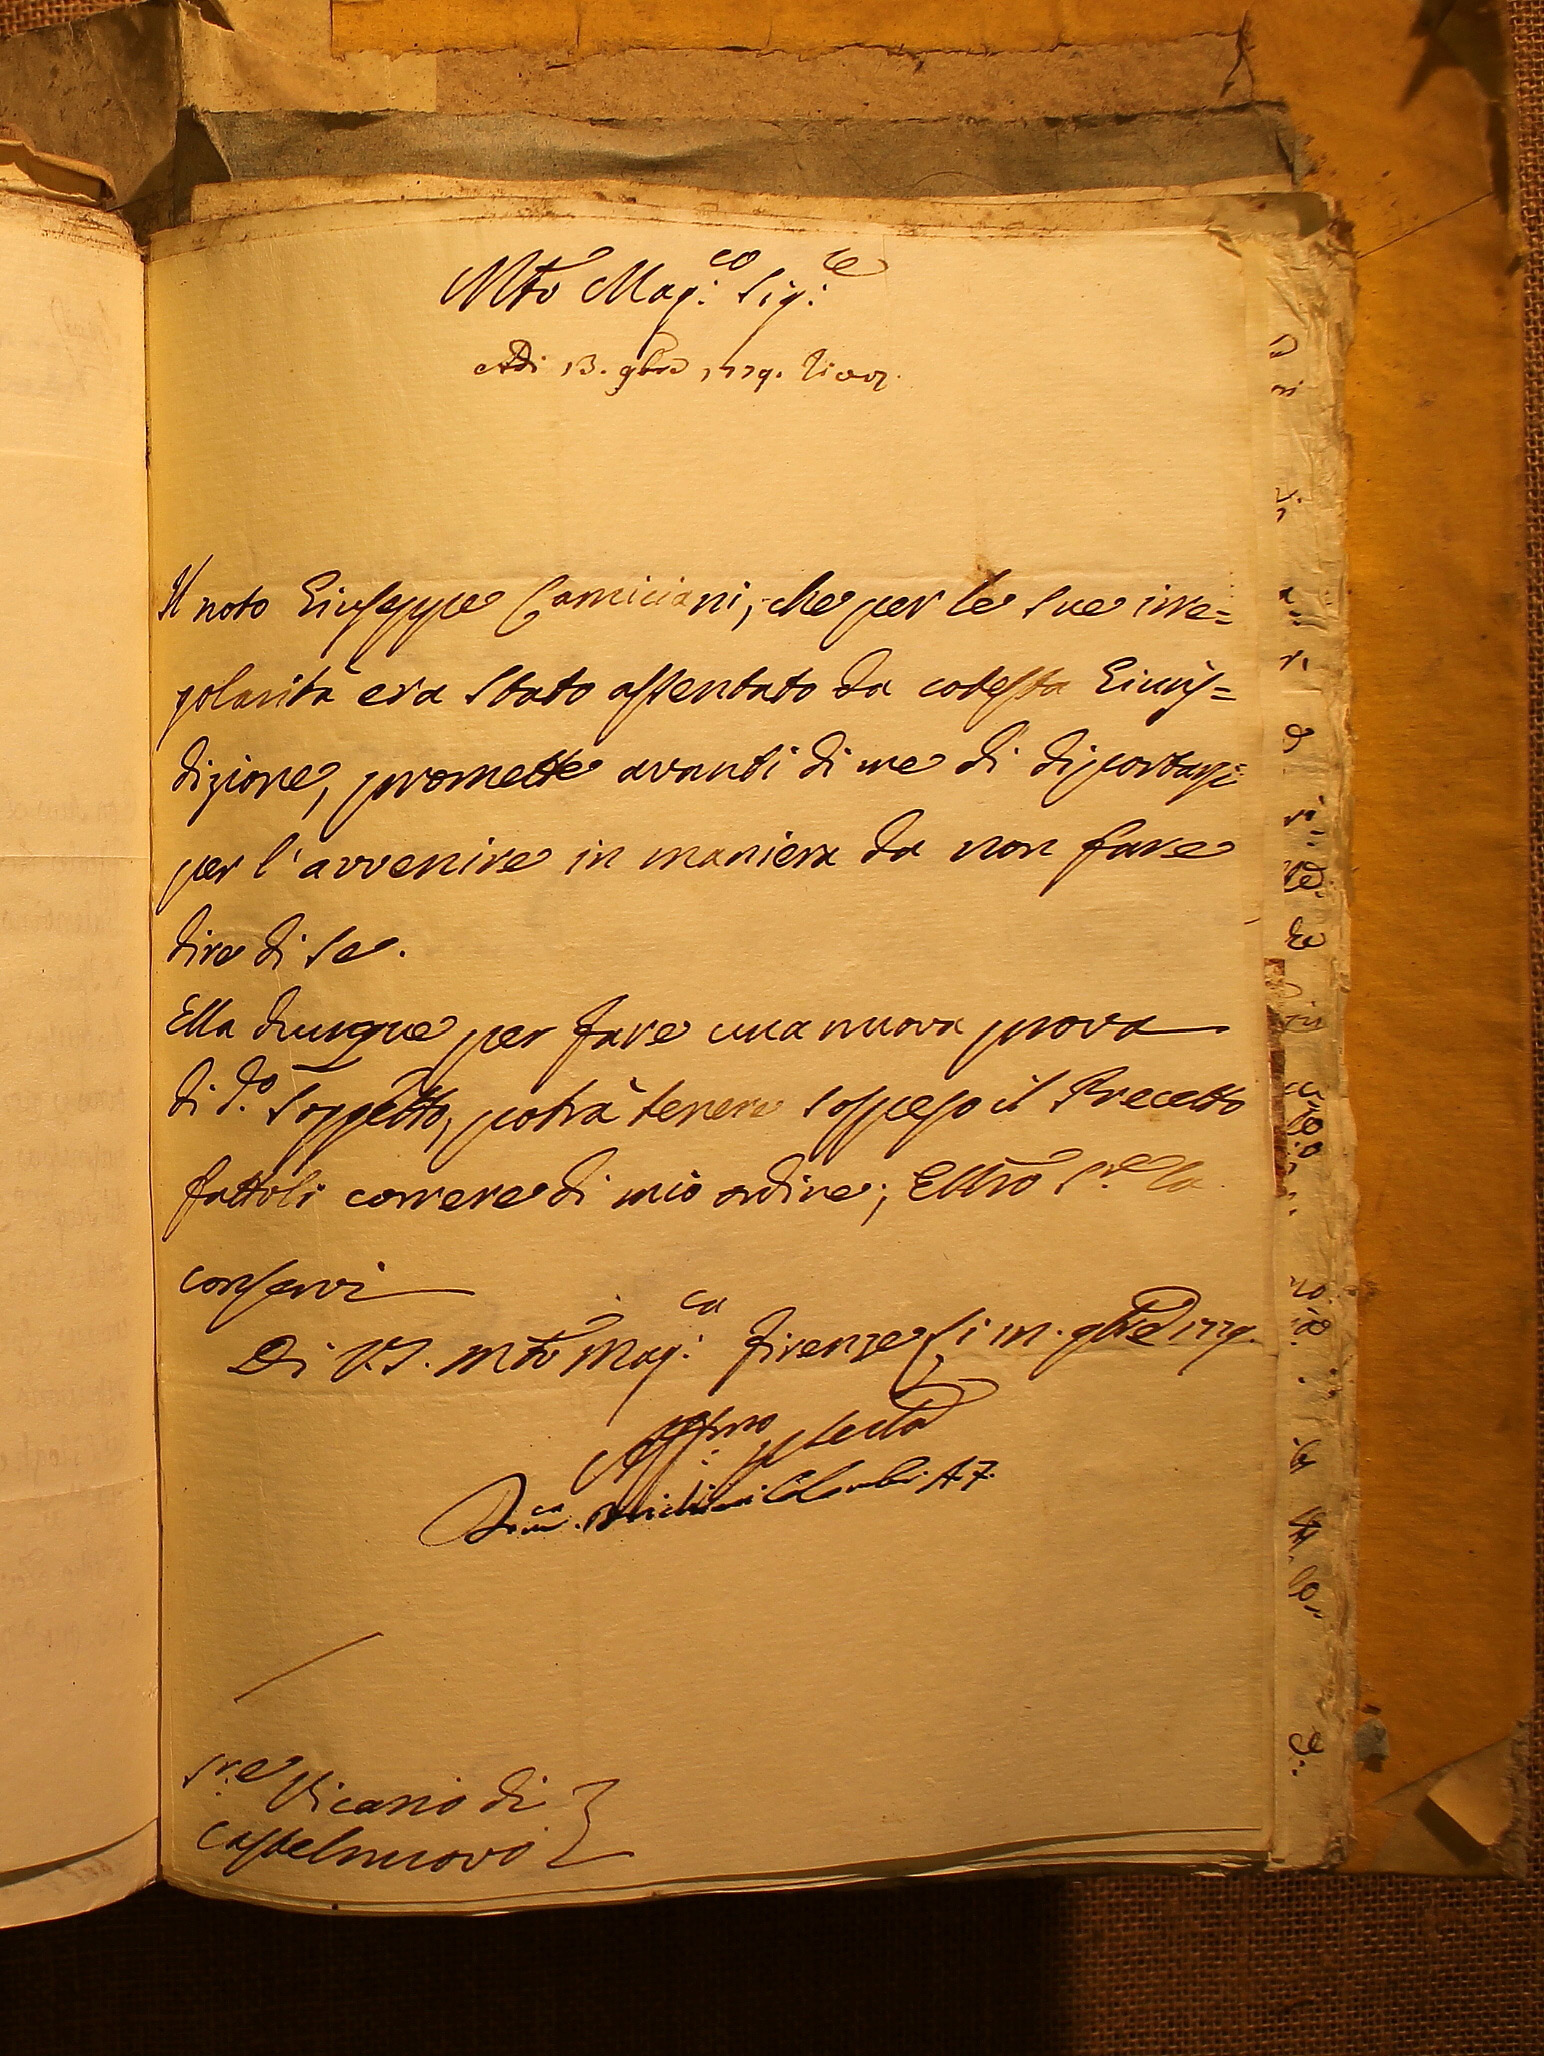 Mto Mag:co Sig:re
Adi 13. gbre 1779. Ricev.
Il noto Giuseppe Camiciani, che per le sue irre=
golarità era stato assentato da codesta Giuris=
dizione, promette avanti di me di diportarsi
per l'avvenire in maniera da non fare
dire di se.
Ella dunque per fare una nuova prova
di d.o Soggetto, potrà tenere sospeso il Precetto
fattoli correre di mio ordine; E Nro Sre la
conservi
Di V.S. Mto Mag:ca Firenze li 11. gbre 1779.
Sre Vicario di
Castelnuovo